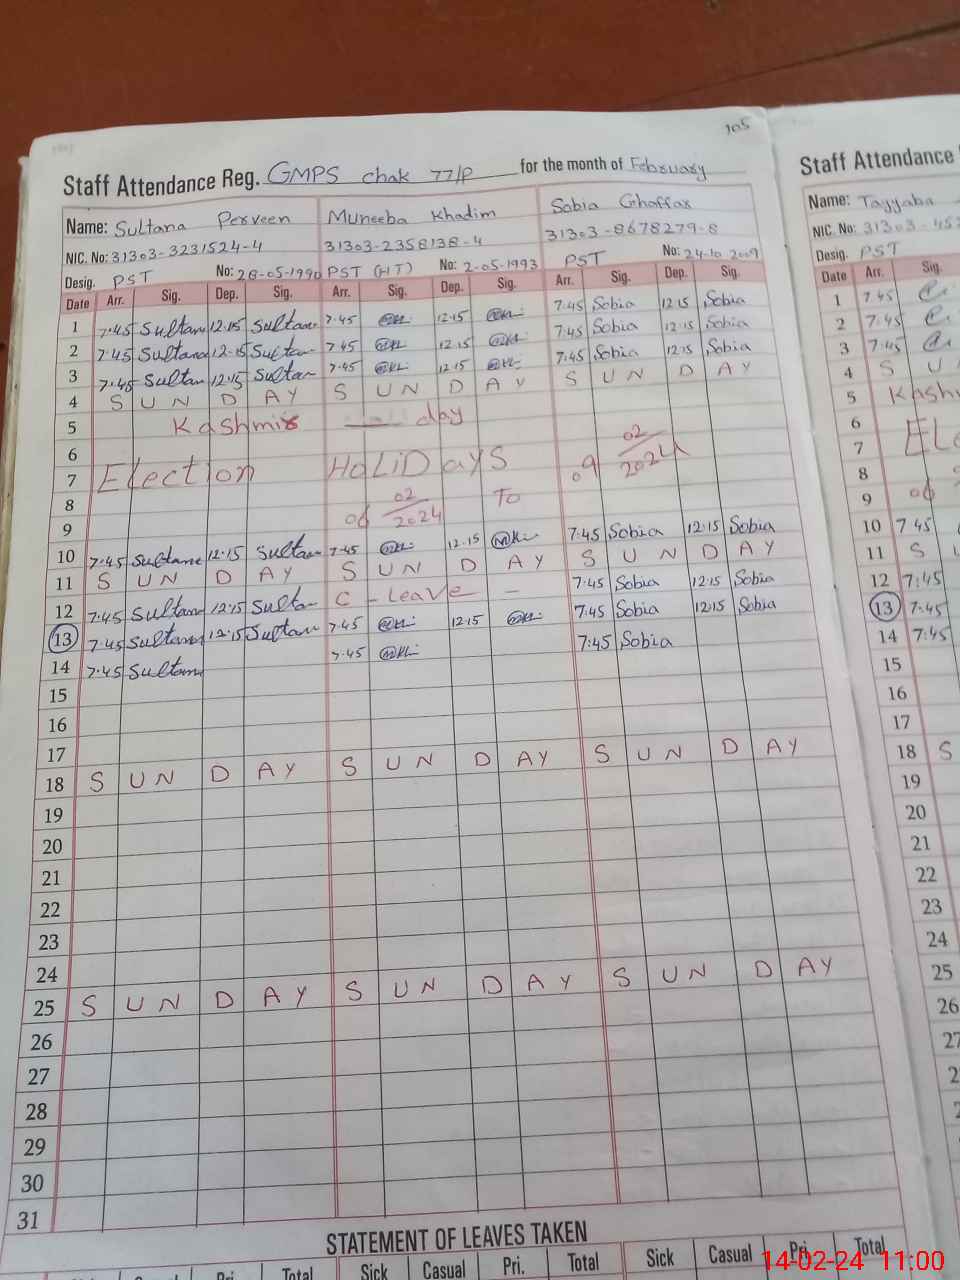 105
Staff Attendance Reg. GMPS chak 77/P for the month of February
Name: Sultana Perveen Muneeba Khadim Sobia Ghaffar
NIC. No: 31303-3231524-4 31303-2358138-4 31303-8678279-8
Desig. PST No: 28-05-1990 PST (HT) No: 2-05-1993 PST No: 24-10 2009
Date Arr. Sig. Dep. Sig. Arr. Sig. Dep. Sig. Arr. Sig. Dep. Sig.
1 7:45 Sultana 12:15 Sultana 7:45 12:15 7:45 Sobia 12:15 Sobia
2 7:45 Sultana 12:15 Sultana 7:45 12:15 7:45 Sobia 12:15 Sobia
3 7:45 Sultana 12:15 Sultana 7:45 12:15 7:45 Sobia 12:15 Sobia
4 S U N D AY S U N D A Y S U N D A Y
5 Kashmir day
6
7 Election HoLiDays 09 02/2024
8 06 02/2024 To
9
10 7:45 Sultana 12:15 Sultana 7:45 12:15 7:45 Sobia 12:15 Sobia
11 S U N D A Y S U N D A Y S U N D A Y
12 7:45 Sultana 12:15 Sultana C - Leave - 7:45 Sobia 12:15 Sobia
13 7:45 Sultana 12:15 Sultana 7:45 12:15 7:45 Sobia 12:15 Sobia
14 7:45 Sultana 7:45 7:45 Sobia
15
16
17
18 S U N D A Y S U N D A Y S U N D A Y
19
20
21
22
23
24
25 S U N D A Y S U N D A Y S U N D A Y
26
27
28
29
30
31
STATEMENT OF LEAVES TAKEN
Pri. Total Sick Casual Pri. Total Sick Casual Pri. Total
Staff Attendance
Name: Tayyaba
NIC. No: 31303-452
Desig. PST
Date Arr. Sig.
1 7:45
2 7:45
3 7:45
4 S U
5 Kashm
6
7 ELe
8
9 06
10 7 45
11 S
12 7:45
13 7:45
14 7:45
15
16
17
18 S
19
20
21
22
23
24
25
26
14-02-24 11:00